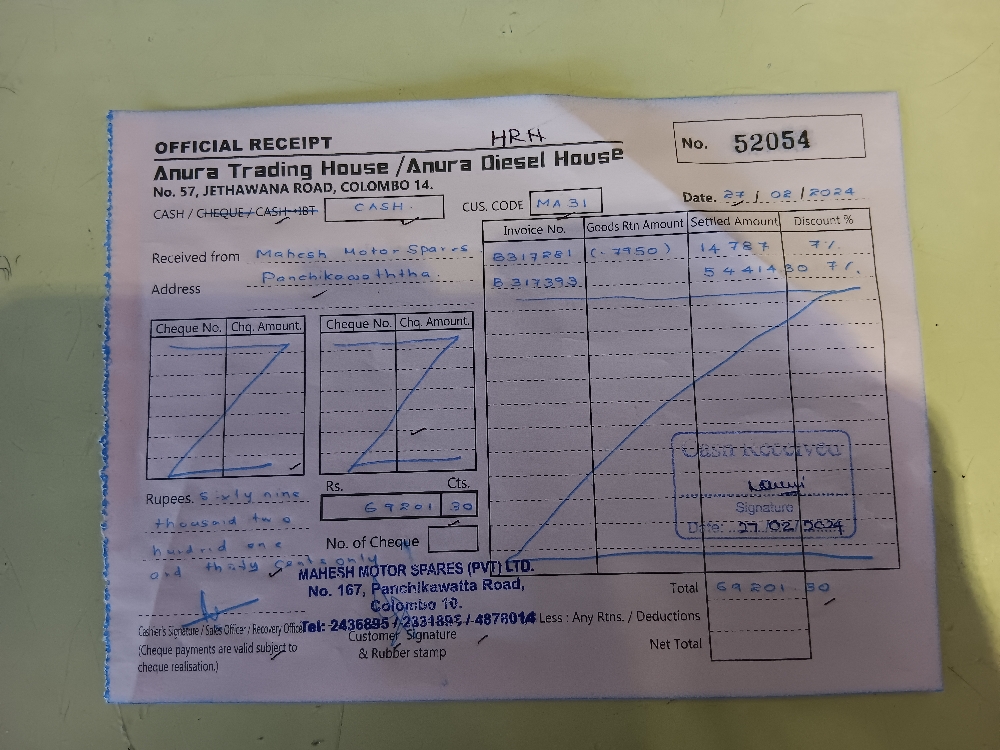 HRH
OFFICIAL RECEIPT
No. 52054
Anura Trading House / Anura Diesel House
No. 57, JETHAWANA ROAD, COLOMBO 14.
CASH / CHEQUE / CASH-IBT CASH.
CUS. CODE MA 31
Date. 27 / 02 / 2024
Received from Mahesh Motor Spares
Address Panchikawaththa.
Invoice No. Goods Rtn Amount Settled Amount Discount %
B317281 (. 7950 ) 14 787 7%
B 317393 54414 30 7%.
Cheque No. Chq. Amount. Cheque No. Chq. Amount.
Cash Received
Signature
Date: 27/02/2024
Rs. Cts.
69201 30
Rupees. Sixly nine
thousaid two
huidrid one
aid thidy cents only
No. of Cheque
MAHESH MOTOR SPARES (PVT) LTD.
No. 167, Panchikawatta Road,
Colombo 10.
Tel: 2436895 / 2331895 / 4878014
Total 69201.30
Less : Any Rtns. / Deductions
Net Total
Casher's Signature / Sales Officer / Recovery Officer
(Cheque payments are valid subject to
cheque realisation.)
Customer Signature
& Rubber stamp